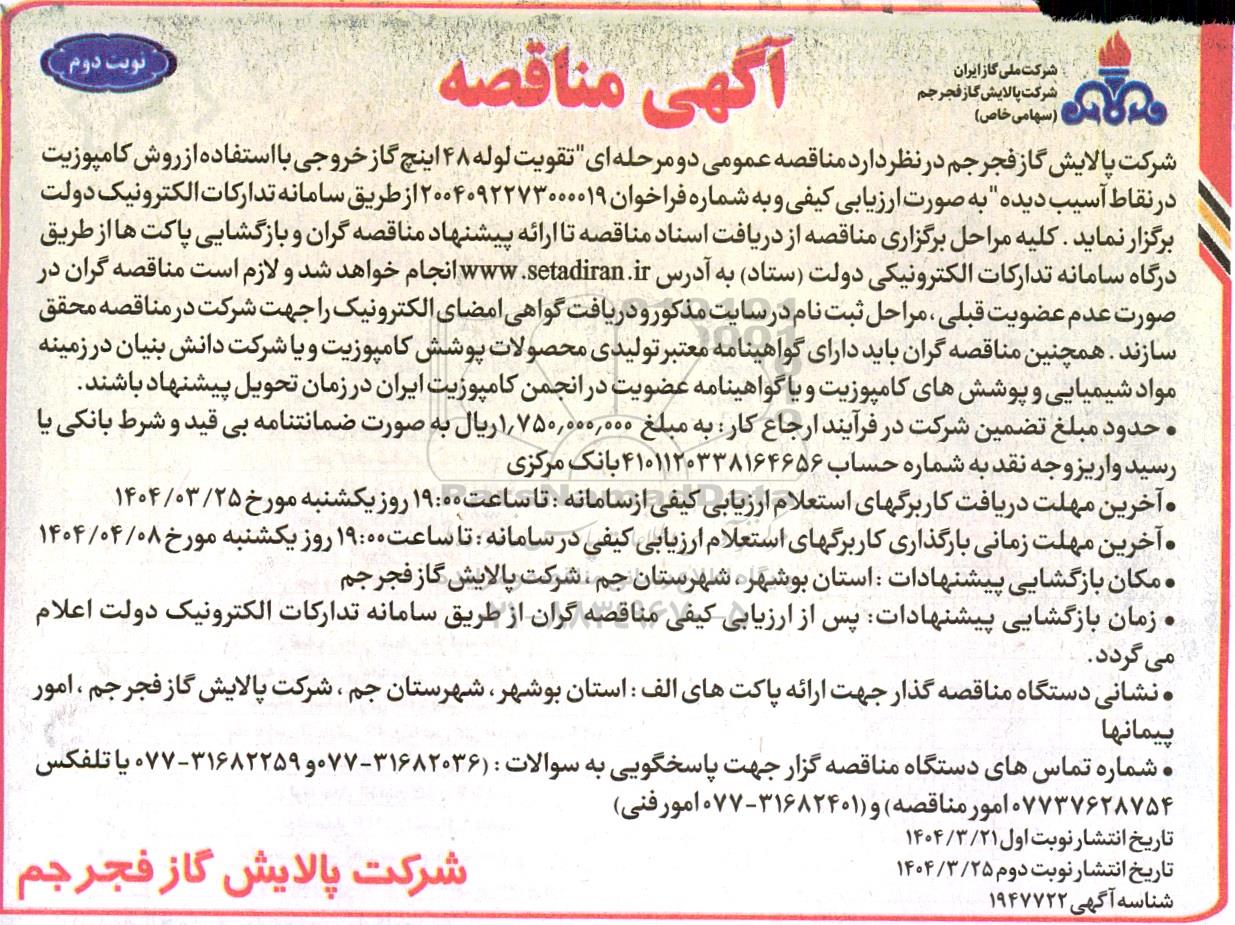 نوبت دوم
آگهی مناقصه
شرکت ملی گاز ایران
شرکت پالایش گاز فجر جم
(سهامی خاص)
شرکت پالایش گاز فجر جم در نظر دارد مناقصه عمومی دو مرحله ای "تقویت لوله ۴۸ اینچ گاز خروجی با استفاده از روش کامپوزیت
در نقاط آسیب دیده" به صورت ارزیابی کیفی و به شماره فراخوان ۲۰۰۴۰۹۲۲۷۳۰۰۰۰۱۹ از طریق سامانه تدارکات الکترونیک دولت
برگزار نماید . کلیه مراحل برگزاری مناقصه از دریافت اسناد مناقصه تا ارائه پیشنهاد مناقصه گران و بازگشایی پاکت ها از طریق
درگاه سامانه تدارکات الکترونیکی دولت (ستاد) به آدرس www.setadiran.ir انجام خواهد شد و لازم است مناقصه گران در
صورت عدم عضویت قبلی ، مراحل ثبت نام در سایت مذکور و دریافت گواهی امضای الکترونیک را جهت شرکت در مناقصه محقق
سازند . همچنین مناقصه گران باید دارای گواهینامه معتبر تولیدی محصولات پوشش کامپوزیت و یا شرکت دانش بنیان در زمینه
مواد شیمیایی و پوشش های کامپوزیت و یا گواهینامه عضویت در انجمن کامپوزیت ایران در زمان تحویل پیشنهاد باشند.
• حدود مبلغ تضمین شرکت در فرآیند ارجاع کار : به مبلغ ۱,۷۵۰,۰۰۰,۰۰۰ ریال به صورت ضمانتنامه بی قید و شرط بانکی یا
رسید واریز وجه نقد به شماره حساب ۴۱۰۱۱۲۰۳۳۸۱۶۴۶۵۶ بانک مرکزی
• آخرین مهلت دریافت کاربرگهای استعلام ارزیابی کیفی از سامانه : تا ساعت ۱۹:۰۰ روز یکشنبه مورخ ۱۴۰۴/۰۳/۲۵
• آخرین مهلت زمانی بارگذاری کاربرگهای استعلام ارزیابی کیفی در سامانه : تا ساعت ۱۹:۰۰ روز یکشنبه مورخ ۱۴۰۴/۰۴/۰۸
• مکان بازگشایی پیشنهادات : استان بوشهر ، شهرستان جم ، شرکت پالایش گاز فجر جم
• زمان بازگشایی پیشنهادات: پس از ارزیابی کیفی مناقصه گران از طریق سامانه تدارکات الکترونیک دولت اعلام
می گردد.
• نشانی دستگاه مناقصه گذار جهت ارائه پاکت های الف : استان بوشهر ، شهرستان جم ، شرکت پالایش گاز فجر جم ، امور
پیمانها
• شماره تماس های دستگاه مناقصه گزار جهت پاسخگویی به سوالات : (۳۱۶۸۲۰۳۶-۰۷۷ و ۳۱۶۸۲۲۵۹-۰۷۷ یا تلفکس
۰۷۷۳۷۶۲۸۷۵۴ امور مناقصه) و (۳۱۶۸۲۴۰۱-۰۷۷ امور فنی)
تاریخ انتشار نوبت اول ۱۴۰۴/۳/۲۱
تاریخ انتشار نوبت دوم ۱۴۰۴/۳/۲۵
شناسه آگهی ۱۹۴۷۷۲۲
شرکت پالایش گاز فجر جم